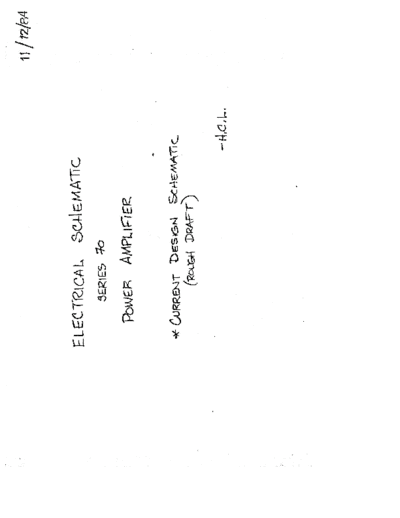 11/12/84
ELECTRICAL SCHEMATIC
SERIES 70
POWER AMPLIFIER
* CURRENT DESIGN SCHEMATIC
(ROUGH DRAFT)
-H.C.L.